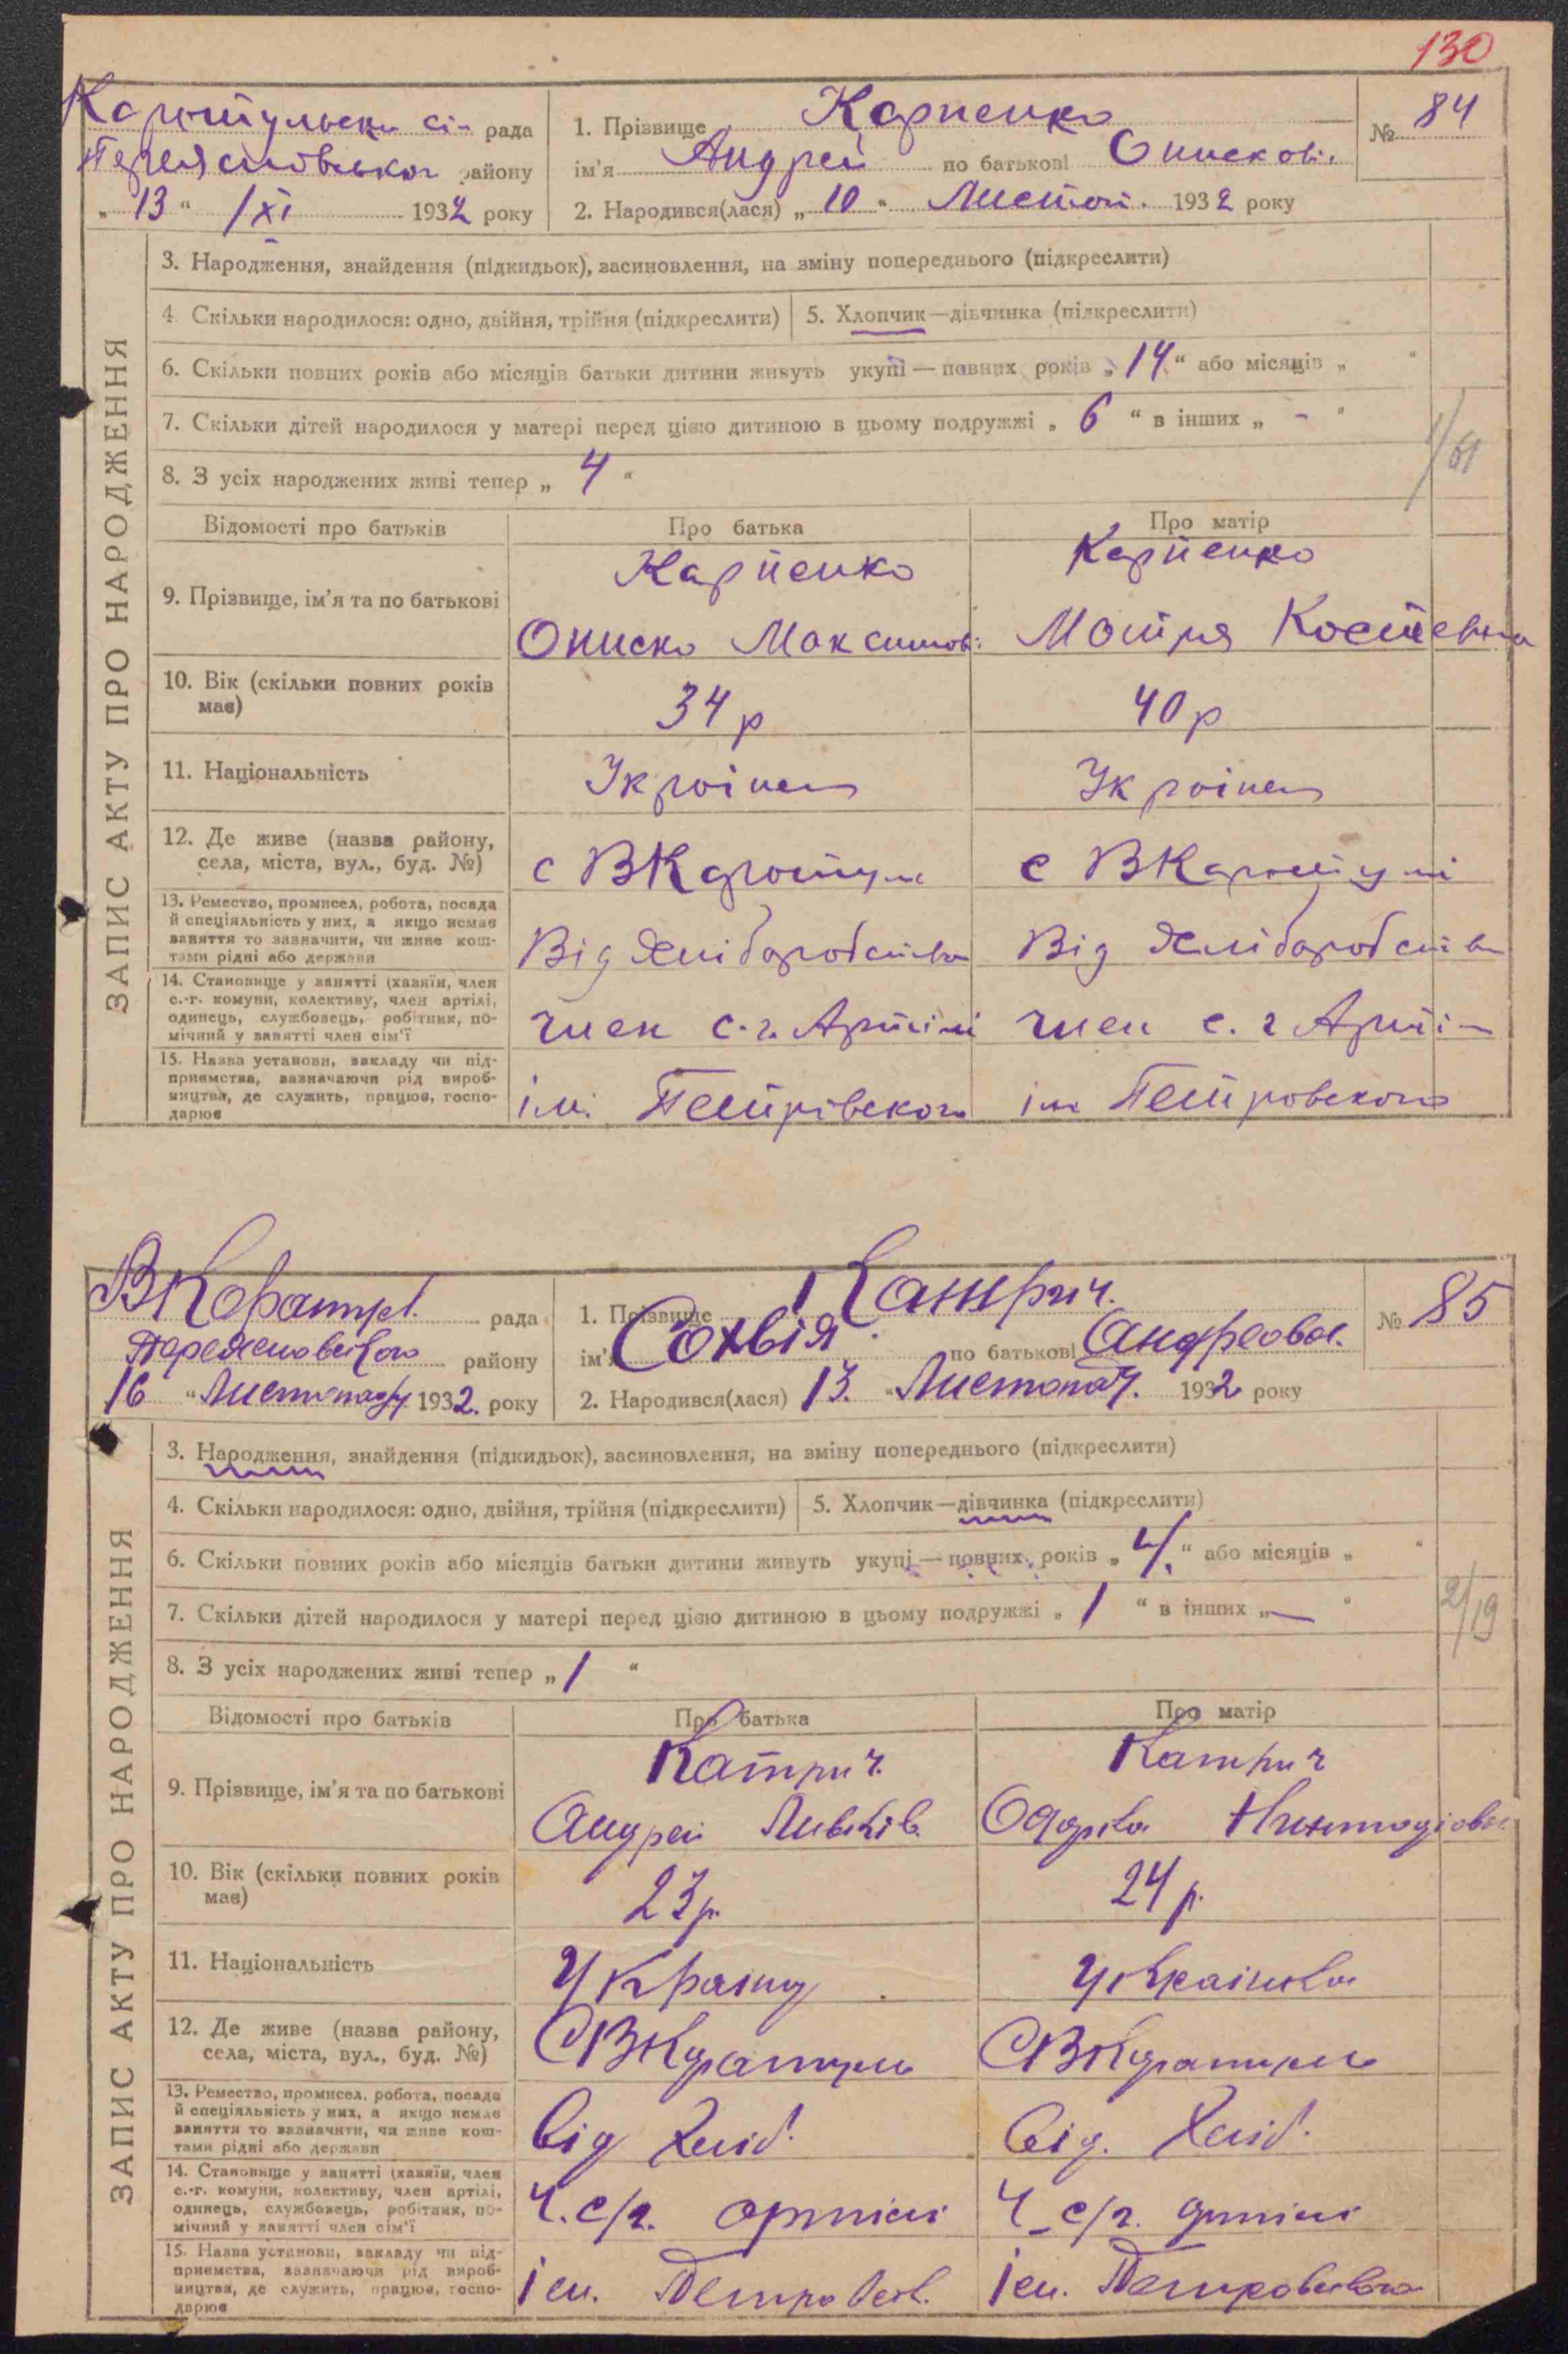 130
Каратульська сі- рада
Переяславського району
„ 13 “ /XI 1932 року
1. Прізвище Карпенко
ім'я Андрей по батькові Онискові.
№ 84
2. Народився(лася) „ 10 “ Листоп. 1932 року
ЗАПИС АКТУ ПРО НАРОДЖЕННЯ
3. Народження, знайдення (підкидьок), засиновлення, на зміну попереднього (підкреслити)
4. Скільки народилося: одно, двійня, трійня (підкреслити) 5. Хлопчик—дівчинка (підкреслити)
6. Скільки повних років або місяців батьки дитини живуть укупі — повних років „ 14 “ або місяців „ “
7. Скільки дітей народилося у матері перед цією дитиною в цьому подружжі „ 6 “ в інших „ - “
8. З усіх народжених живі тепер „ 4 “
1/61
Відомості про батьків Про батька Про матір
9. Прізвище, ім'я та по батькові
Карпенко Карпенко
Ониско Максимов: Мотря Костевна
10. Вік (скільки повних років має)
34 р 40 р
11. Національність
Українец Українец
12. Де живе (назва району, села, міста, вул., буд. №)
с ВКаратуль с ВКаратулі
13. Ремество, промисел, робота, посада й спеціяльність у них, а якщо немає заняття то зазначити, чи живе коштами рідні або держави
Від Хліборобства Від Хліборобства
14. Становище у занятті (хазяїн, член с.-г. комуни, колективу, член артілі, одинець, службовець, робітник, помічний у занятті член сім'ї
член с.г. Артілі член с. г Артілі
15. Назва установи, закладу чи підприємства, зазначаючи рід виробництва, де служить, працює, господарює
ім. Петрівского ім Петровского
ВКоратул. рада
Переяславського району
16 “ Листопаду 1932. року
1. Прізвище Катрич.
ім'я Сохвія по батькові Андреовва.
№ 85
2. Народився(лася) 13. “ Листопад. 1932 року
ЗАПИС АКТУ ПРО НАРОДЖЕННЯ
3. Народження, знайдення (підкидьок), засиновлення, на зміну попереднього (підкреслити)
4. Скільки народилося: одно, двійня, трійня (підкреслити) 5. Хлопчик—дівчинка (підкреслити)
6. Скільки повних років або місяців батьки дитини живуть укупі — повних років „ 4. “ або місяців „ “
7. Скільки дітей народилося у матері перед цією дитиною в цьому подружжі „ 1 “ в інших „ — “
8. З усіх народжених живі тепер „ 1 “
2/19
Відомості про батьків Про батька Про матір
9. Прізвище, ім'я та по батькові
Катрич. Катрич
Андрей Одарка
10. Вік (скільки повних років має)
23 р. 24 р.
11. Національність
Українц Українка
12. Де живе (назва району, села, міста, вул., буд. №)
СВКаратуль СВКаратуль
13. Ремество, промисел, робота, посада й спеціяльність у них, а якщо немає заняття то зазначити, чи живе коштами рідні або держави
Від Хліб. Від. Хліб.
14. Становище у занятті (хазяїн, член с.-г. комуни, колективу, член артілі, одинець, службовець, робітник, помічний у занятті член сім'ї
Ч. с/г. артілі Ч с/г. артілі
15. Назва установи, закладу чи підприємства, зазначаючи рід виробництва, де служить, працює, господарює
ім. Петровськ. ім. Петровського